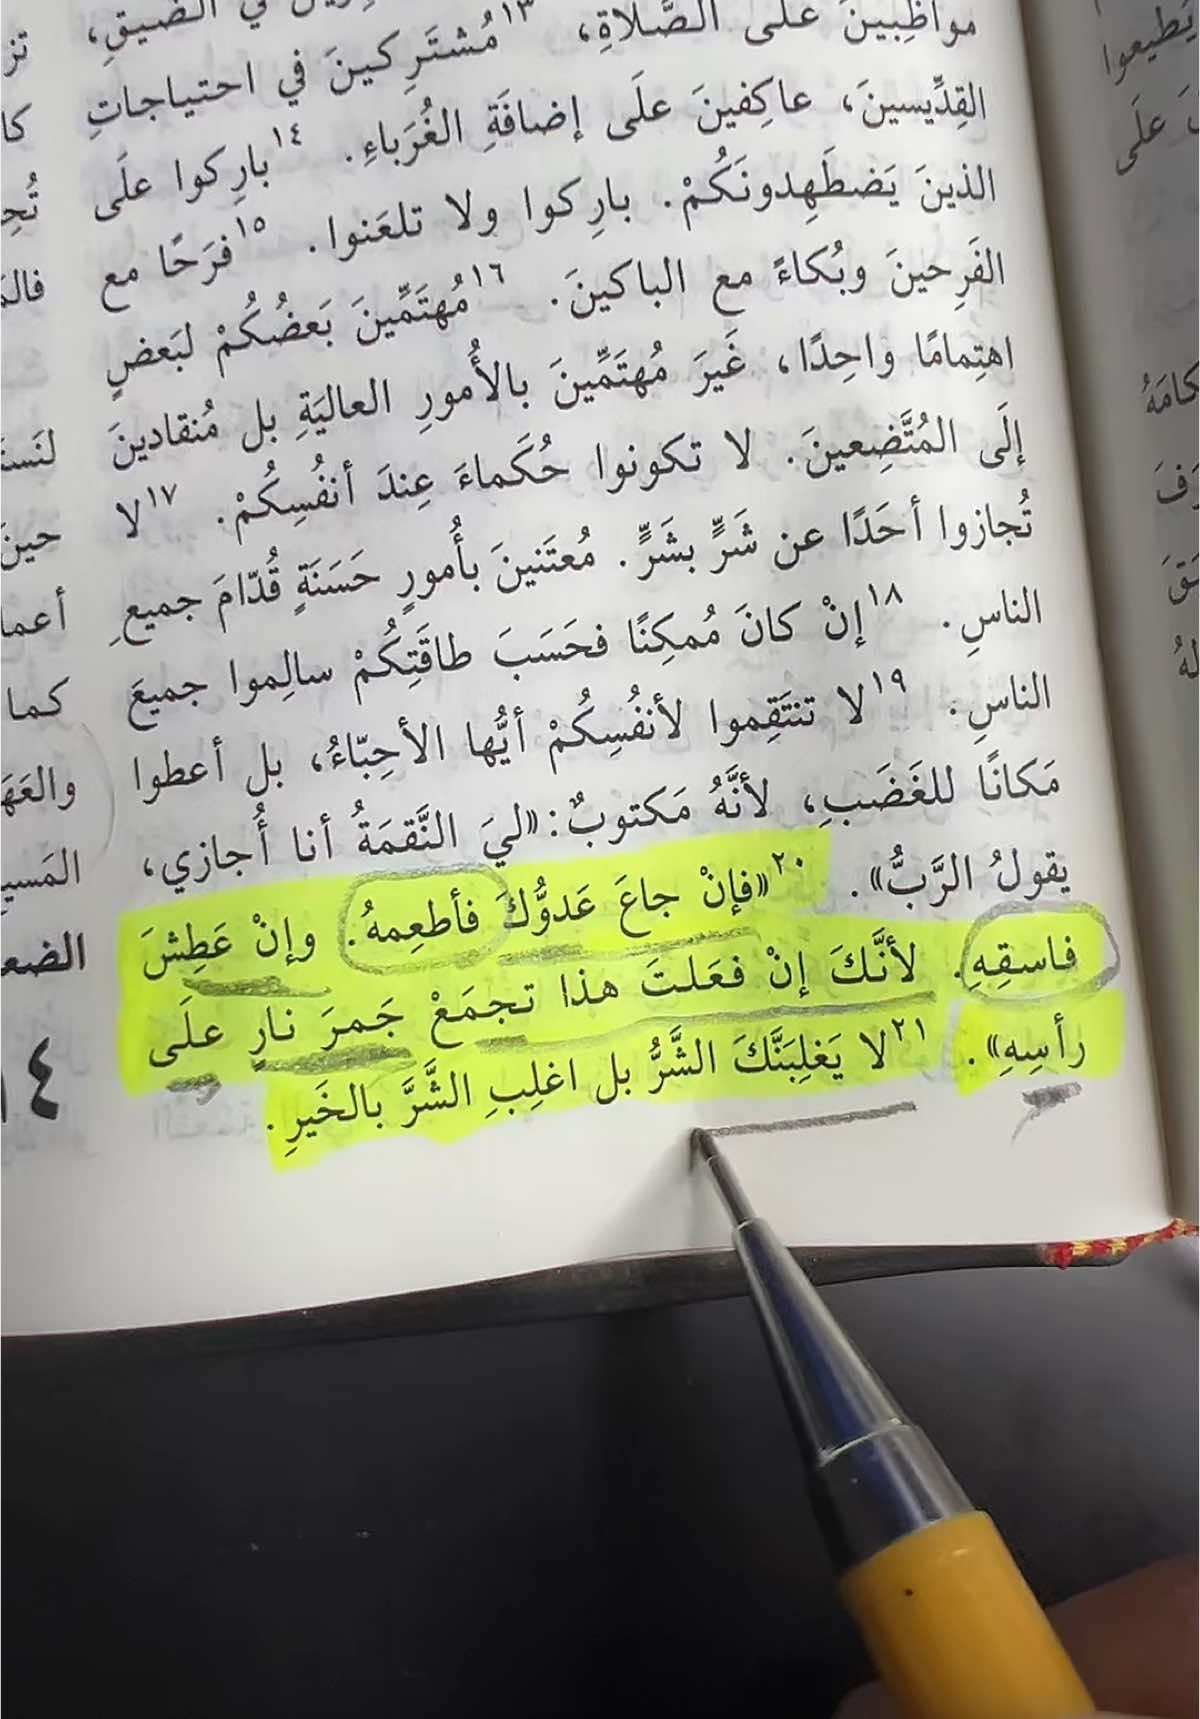 في الضيقِ،
مواظِبينَ علَى الصَّلاةِ، ١٣مُشتَرِكينَ في احتياجاتِ
القِدِّيسينَ، عاكِفينَ علَى إضافَةِ الغُرَباءِ. ١٤بارِكوا علَى
الذينَ يَضطَهِدونَكُمْ. بارِكوا ولا تلعَنوا. ١٥فرَحًا مع
الفَرِحينَ وبُكاءً مع الباكينَ. ١٦مُهتَمِّينَ بَعضُكُمْ لبَعضٍ
اهتِمامًا واحِدًا، غَيرَ مُهتَمِّينَ بالأُمورِ العاليَةِ بل مُنقادينَ
إلَى المُتَّضِعينَ. لا تكونوا حُكَماءَ عِندَ أنفُسِكُمْ. ١٧لا
تُجازوا أحَدًا عن شَرٍّ بشَرٍّ. مُعتَنينَ بأُمورٍ حَسَنَةٍ قُدّامَ جميعِ
الناسِ. ١٨إنْ كانَ مُمكِنًا فحَسَبَ طاقَتِكُمْ سالِموا جميعَ
الناسِ. ١٩لا تنتَقِموا لأنفُسِكُمْ أيُّها الأحِبّاءُ، بل أعطوا
مَكانًا للغَضَبِ، لأنَّهُ مَكتوبٌ: «ليَ النَّقمَةُ أنا أُجازي،
يقولُ الرَّبُّ». ٢٠«فإنْ جاعَ عَدوُّكَ فأطعِمهُ. وإنْ عَطِشَ
فاسقِهِ. لأنَّكَ إنْ فعَلتَ هذا تجمَعْ جَمرَ نارٍ علَى
رأسِهِ». ٢١لا يَغلِبَنَّكَ الشَّرُّ بل اغلِبِ الشَّرَّ بالخَيرِ.
يُطيعوا
علَى
حينَ
كما